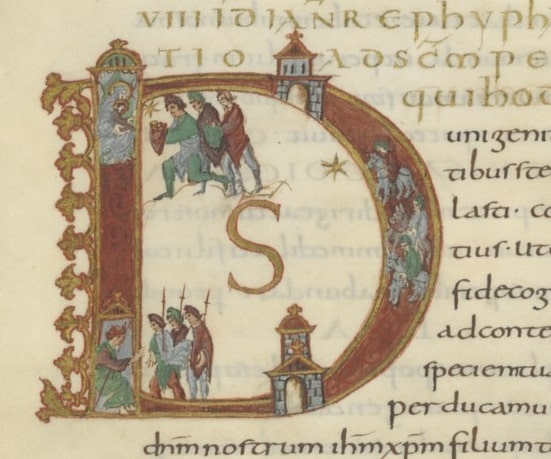 VIII ID IAN̄R EPHYPH
TIO AD SCM̄ PE
DS quihod
unigeni
tibus ste
lasti· co
tius· ut
fide cog
ad conte
speciem tua
perducamu
dn̄m nostrum ih̄m xp̄m filium